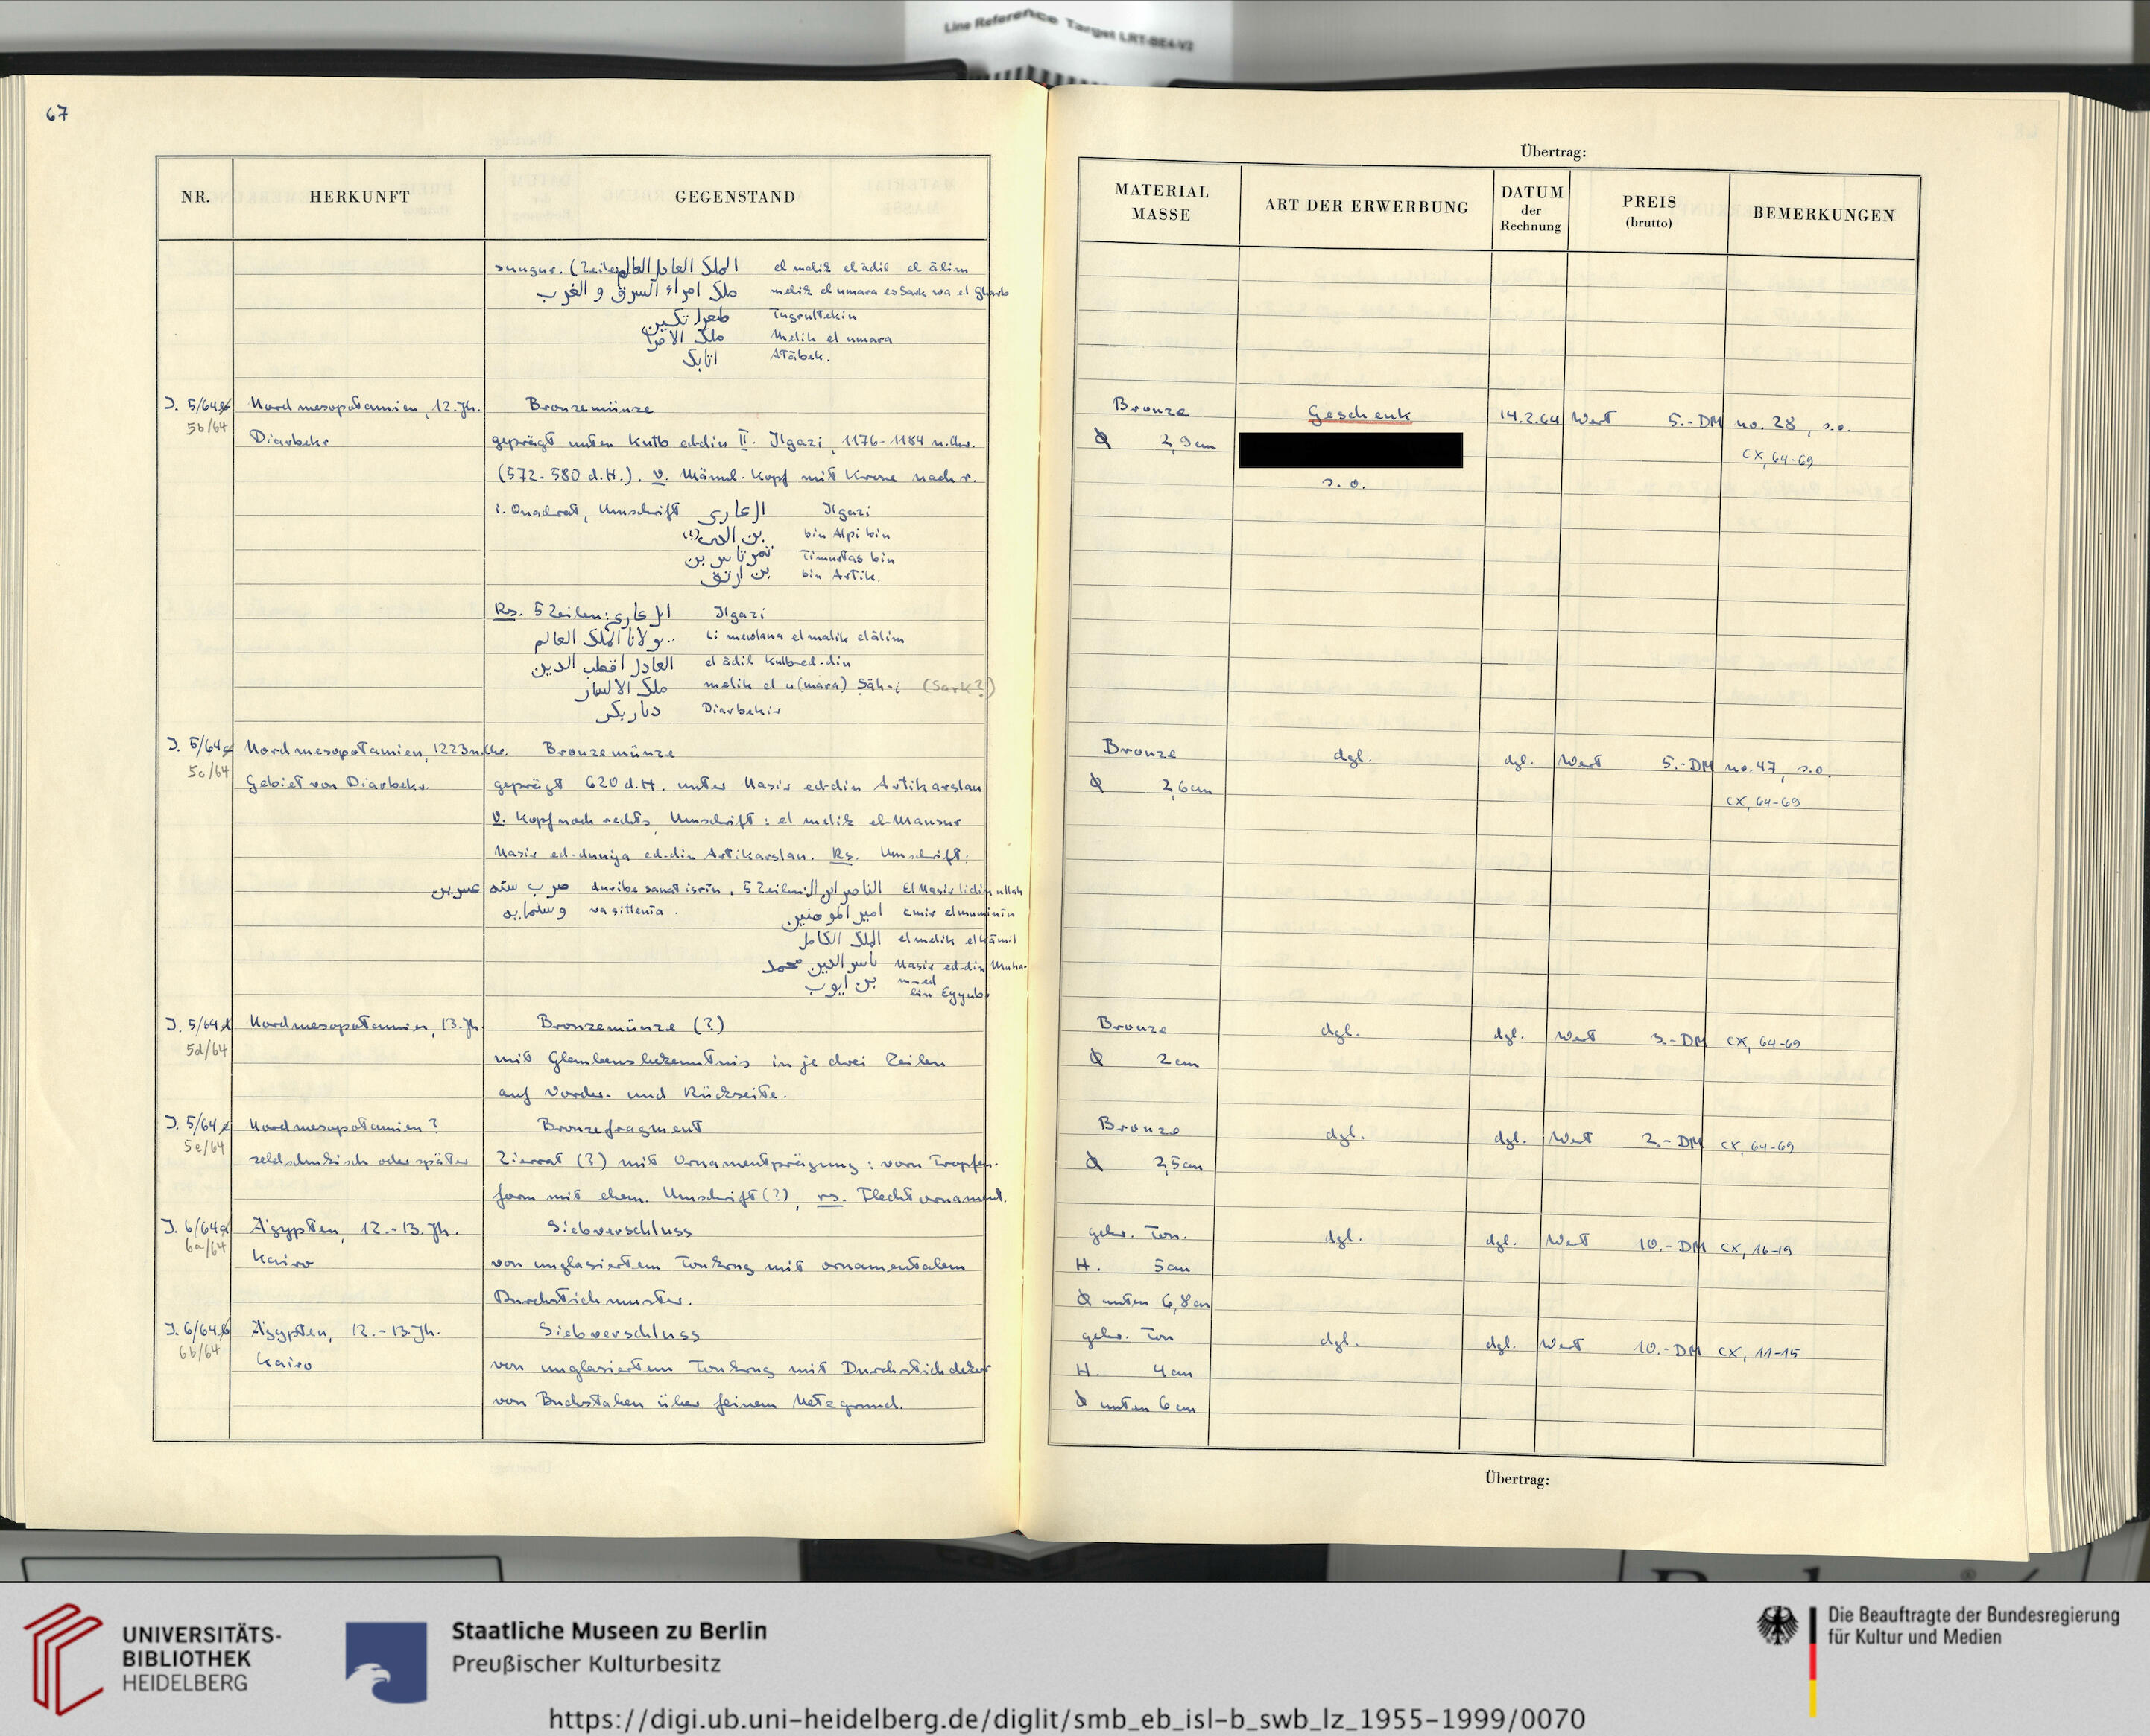 Line Reference Target LRT-BE4-V2
67
NR. HERKUNFT GEGENSTAND
sungur. (Zeilen) الملك العادل العالم el melik el âdil el âlim
ملك امراء السرق و الغرب melik el umara es Sark wa el Gharb
طغرل تكين Tugrultekin
ملك الامرا Melik el umara
اتابك Atâbek.
J. 5/64b Nordmesopotamien, 12. Jh. Bronzemünze
5b/64
Diarbekr geprägt unter Kutb ed-din II. Ilgazi, 1176-1184 n. Chr.
(572-580 d.H.). V. Männl. Kopf mit Krone nach r.
i. Quadrat, Umschrift Ilgazi
bin Alpi bin
Timurtas bin
بن ارتق bin Artik.
Rs. 5 Zeilen: Ilgazi
مولانا الملك العالم li mewlana el malik el âlim
العادل قطب الدين el âdil Kutb ed-din
melik el u(mara) Şâh-i (Sark?)
ديار بكر Diarbekir
J. 5/64c Nordmesopotamien, 1223 n. Chr. Bronzemünze
5c/64
Gebiet von Diarbekr. geprägt 620 d.H. unter Nasir ed-din Artikarslan
V. Kopf nach rechts, Umschrift: el melik el-Mansur
Nasir ed-dunija ed-din Artikarslan. Rs. Umschrift:
ضرب سنه عسرين duribe sanat isrin, 5 Zeilen: El Nasir lidin ullah
وستمايه wa sittemia. امير المومنين Emir el muminin
الملك الكامل el melik el kâmil
ناسر الدين محمد Nasir ed-din Muha-
med
بن ايوب bin Eyyub.
J. 5/64d Nordmesopotamien, 13. Jh. Bronzemünze (?)
5d/64
mit Glaubensbekenntnis in je drei Zeilen
auf Vorder- und Rückseite.
J. 5/64e Nordmesopotamien? Bronzefragment
5e/64
seldschukisch oder später Zierrat (?) mit Ornamentprägung: vorn Tropfen-
form mit ehem. Umschrift (?), rs. Flechtornament.
J. 6/64a Ägypten, 12.-13. Jh. Siebverschluss
6a/64
Kairo von unglasiertem Tonkrug mit ornamentalem
Durchstichmuster.
J. 6/64b Ägypten, 12.-13. Jh. Siebverschluss
6b/64
Kairo von unglasiertem Tonkrug mit Durchstichdekor
von Buchstaben über feinem Netzgrund.
Übertrag:
MATERIAL MASSE ART DER ERWERBUNG DATUM der Rechnung PREIS (brutto) BEMERKUNGEN
Bronze Geschenk 14.2.64 Wert 5.- DM no. 28, s.o.
Ø 2,9 cm CX, 64-69
s. o.
Bronze dgl. dgl. Wert 5.- DM no. 47, s.o.
Ø 2,6 cm CX, 64-69
Bronze dgl. dgl. Wert 3.- DM CX, 64-69
Ø 2 cm
Bronze dgl. dgl. Wert 2.- DM CX, 64-69
Ø 2,5 cm
gebr. Ton. dgl. dgl. Wert 10.- DM CX, 16-19
H. 5 cm
Ø unten 6,8 cm
gebr. Ton dgl. dgl. Wert 10.- DM CX, 11-15
H. 4 cm
Ø unten 6 cm
Übertrag:
UNIVERSITÄTS-
BIBLIOTHEK
HEIDELBERG
Staatliche Museen zu Berlin
Preußischer Kulturbesitz
Die Beauftragte der Bundesregierung
für Kultur und Medien
https://digi.ub.uni-heidelberg.de/diglit/smb_eb_isl-b_swb_lz_1955-1999/0070